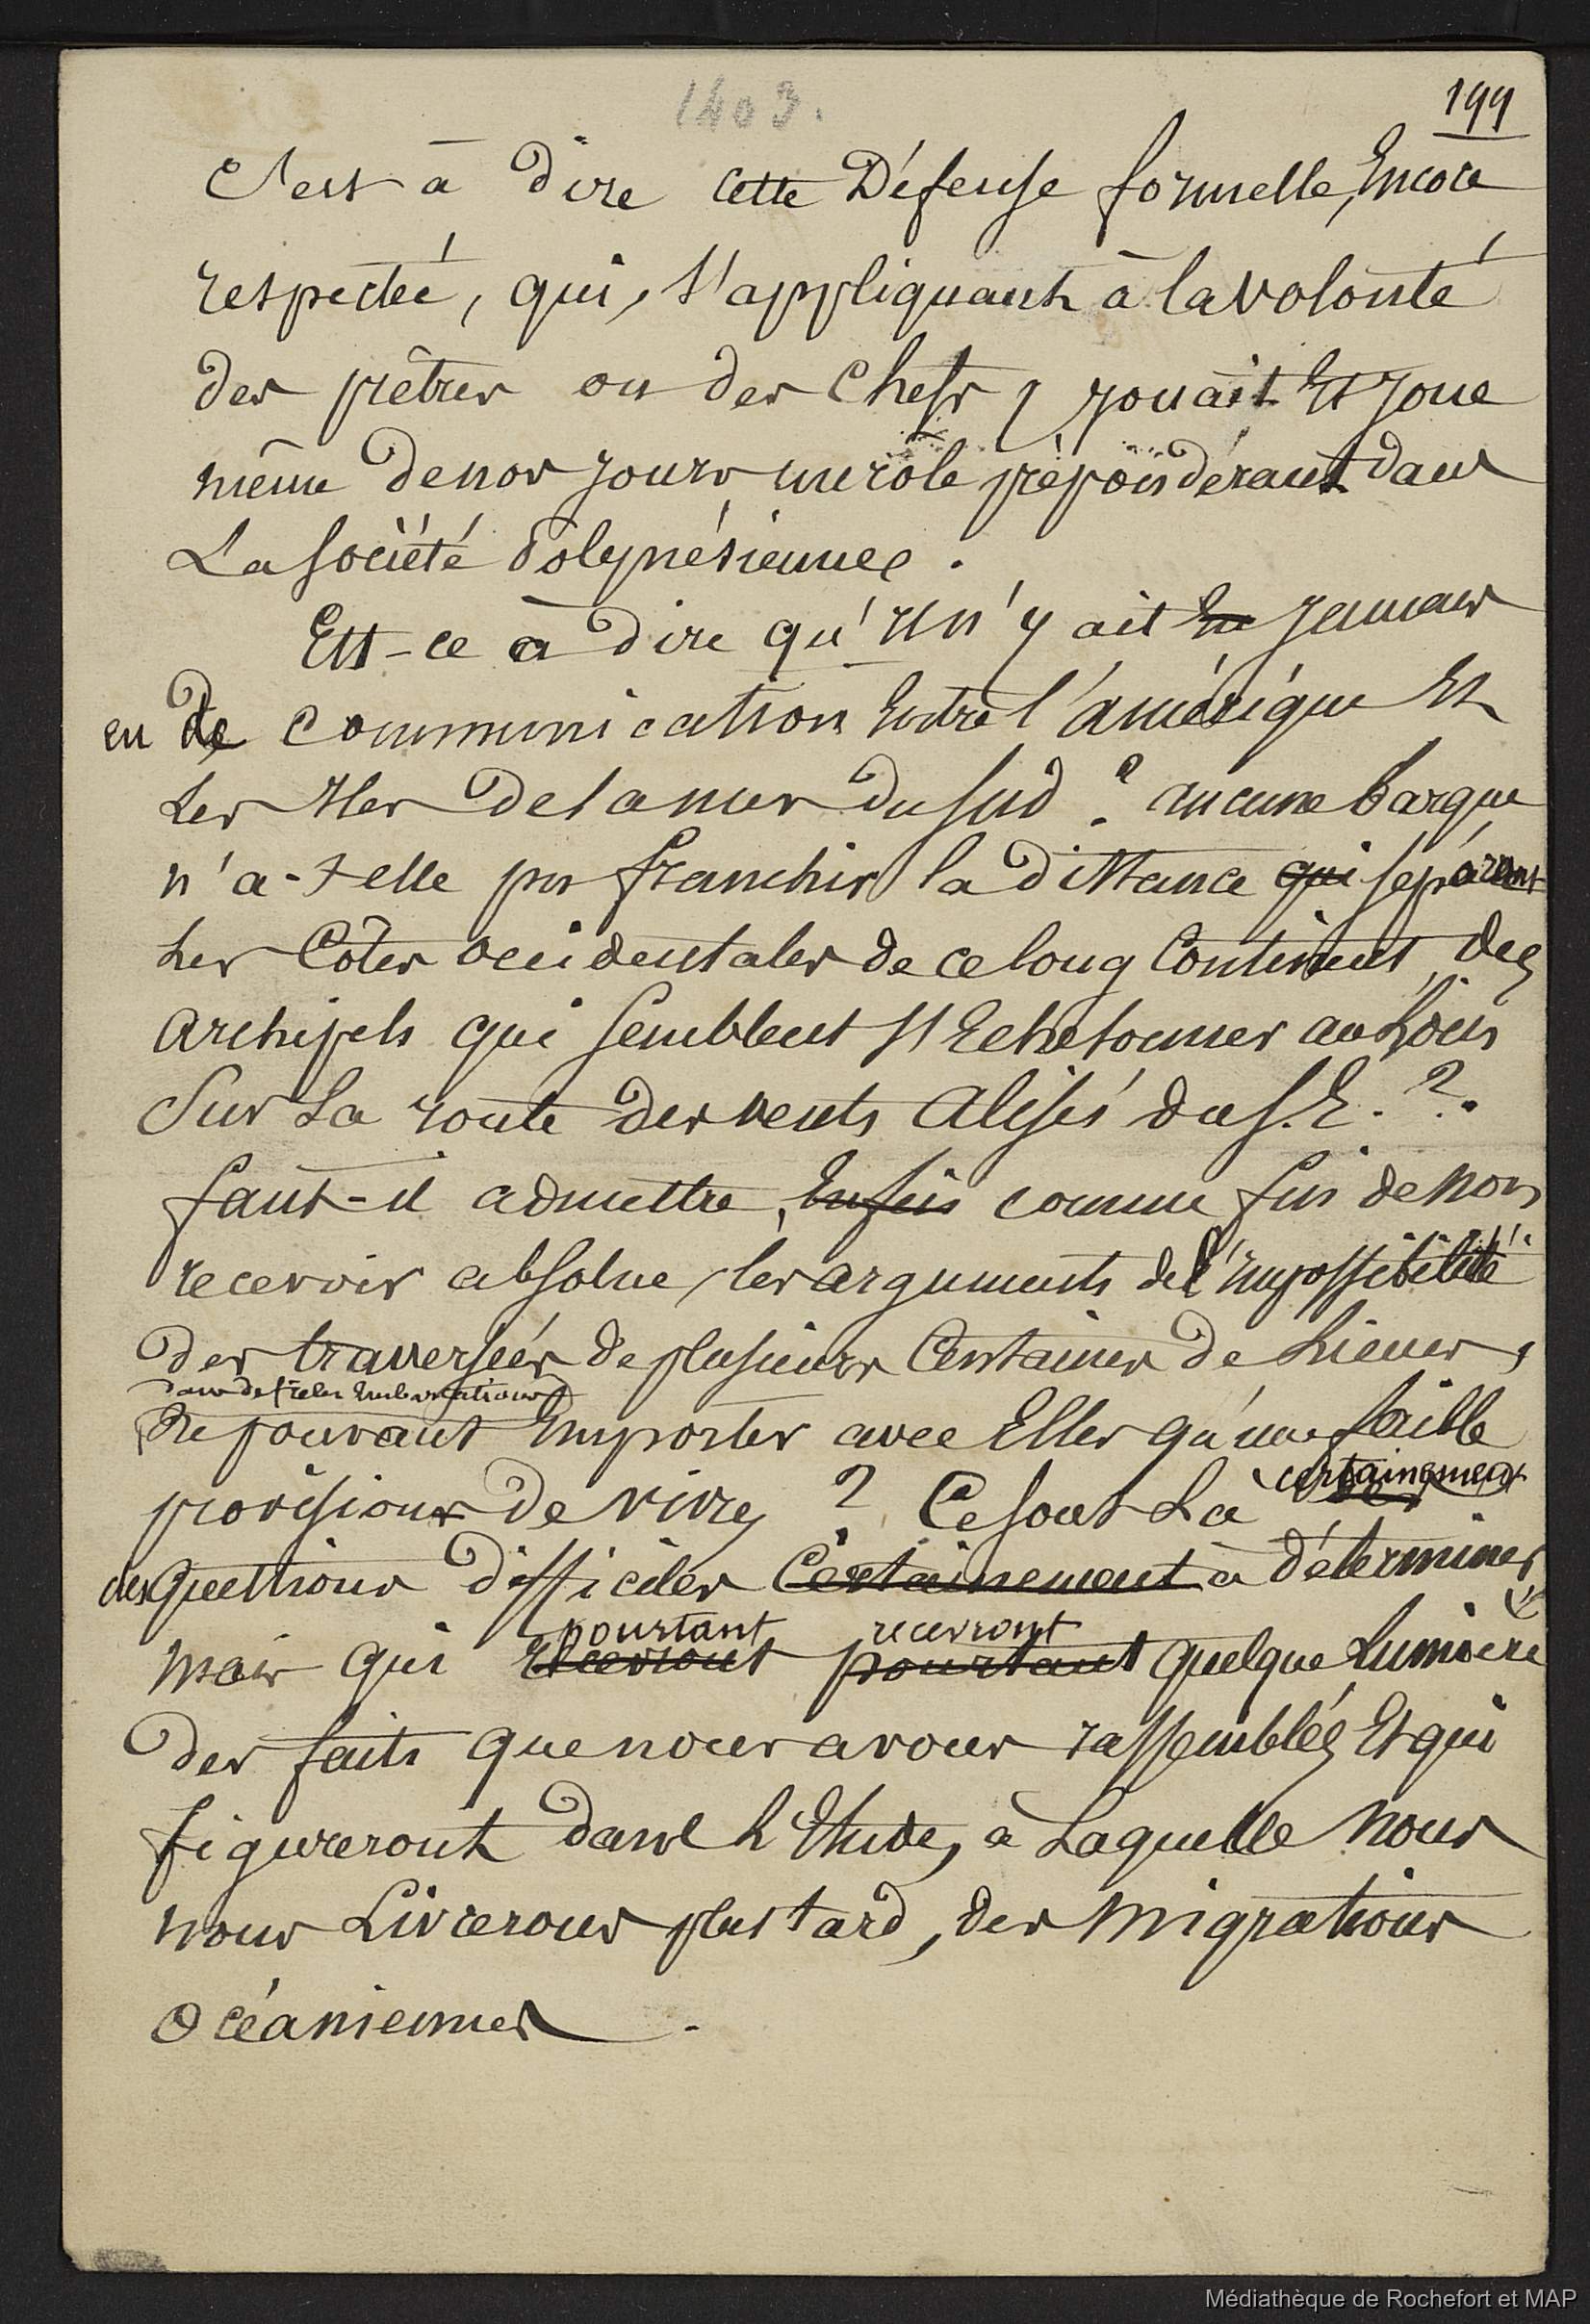 1403.
199
C'est à dire cette Défense formelle, Encore
respectée, qui, s'appliquant à la volonté
des prêtres ou des Chefs, jouait Et joue
même de nos jours un rôle prépondérant dans
La société Polynésienne.
Est-ce à dire qu'Il n'y ait Eu jamais
eu de communication Entre l'amérique Et
Les Iles de la mer du Sud ? aucune barque
n'a-t-elle pu franchir la distance qui séparent
Les Côtes occidentales de ce long Continent, des
Archipels qui semblent s'Echelonner au Loin
Sur La route des vents Alisés du S.E. ?.
faut-il admettre, Enfin comme fin de non
recevoir absolue, les arguments de l'Impossibilité
des traversées de plusieurs Centaines de Lieues,
dans de frêles Embarcations
Ne pouvant Emporter avec Elles qu'une faible
provisions de vivres ? Ce sont Là certainement
des questions difficiles Certainement à déterminer
pourtant recevront
mais qui recevront pourtant quelque Lumière
des faits que nous avons rassemblés Et qui
figureront dans L'Etude, à Laquelle nous
nous Livrerons plus tard, des Migrations
Océaniennes.
Médiathèque de Rochefort et MAP